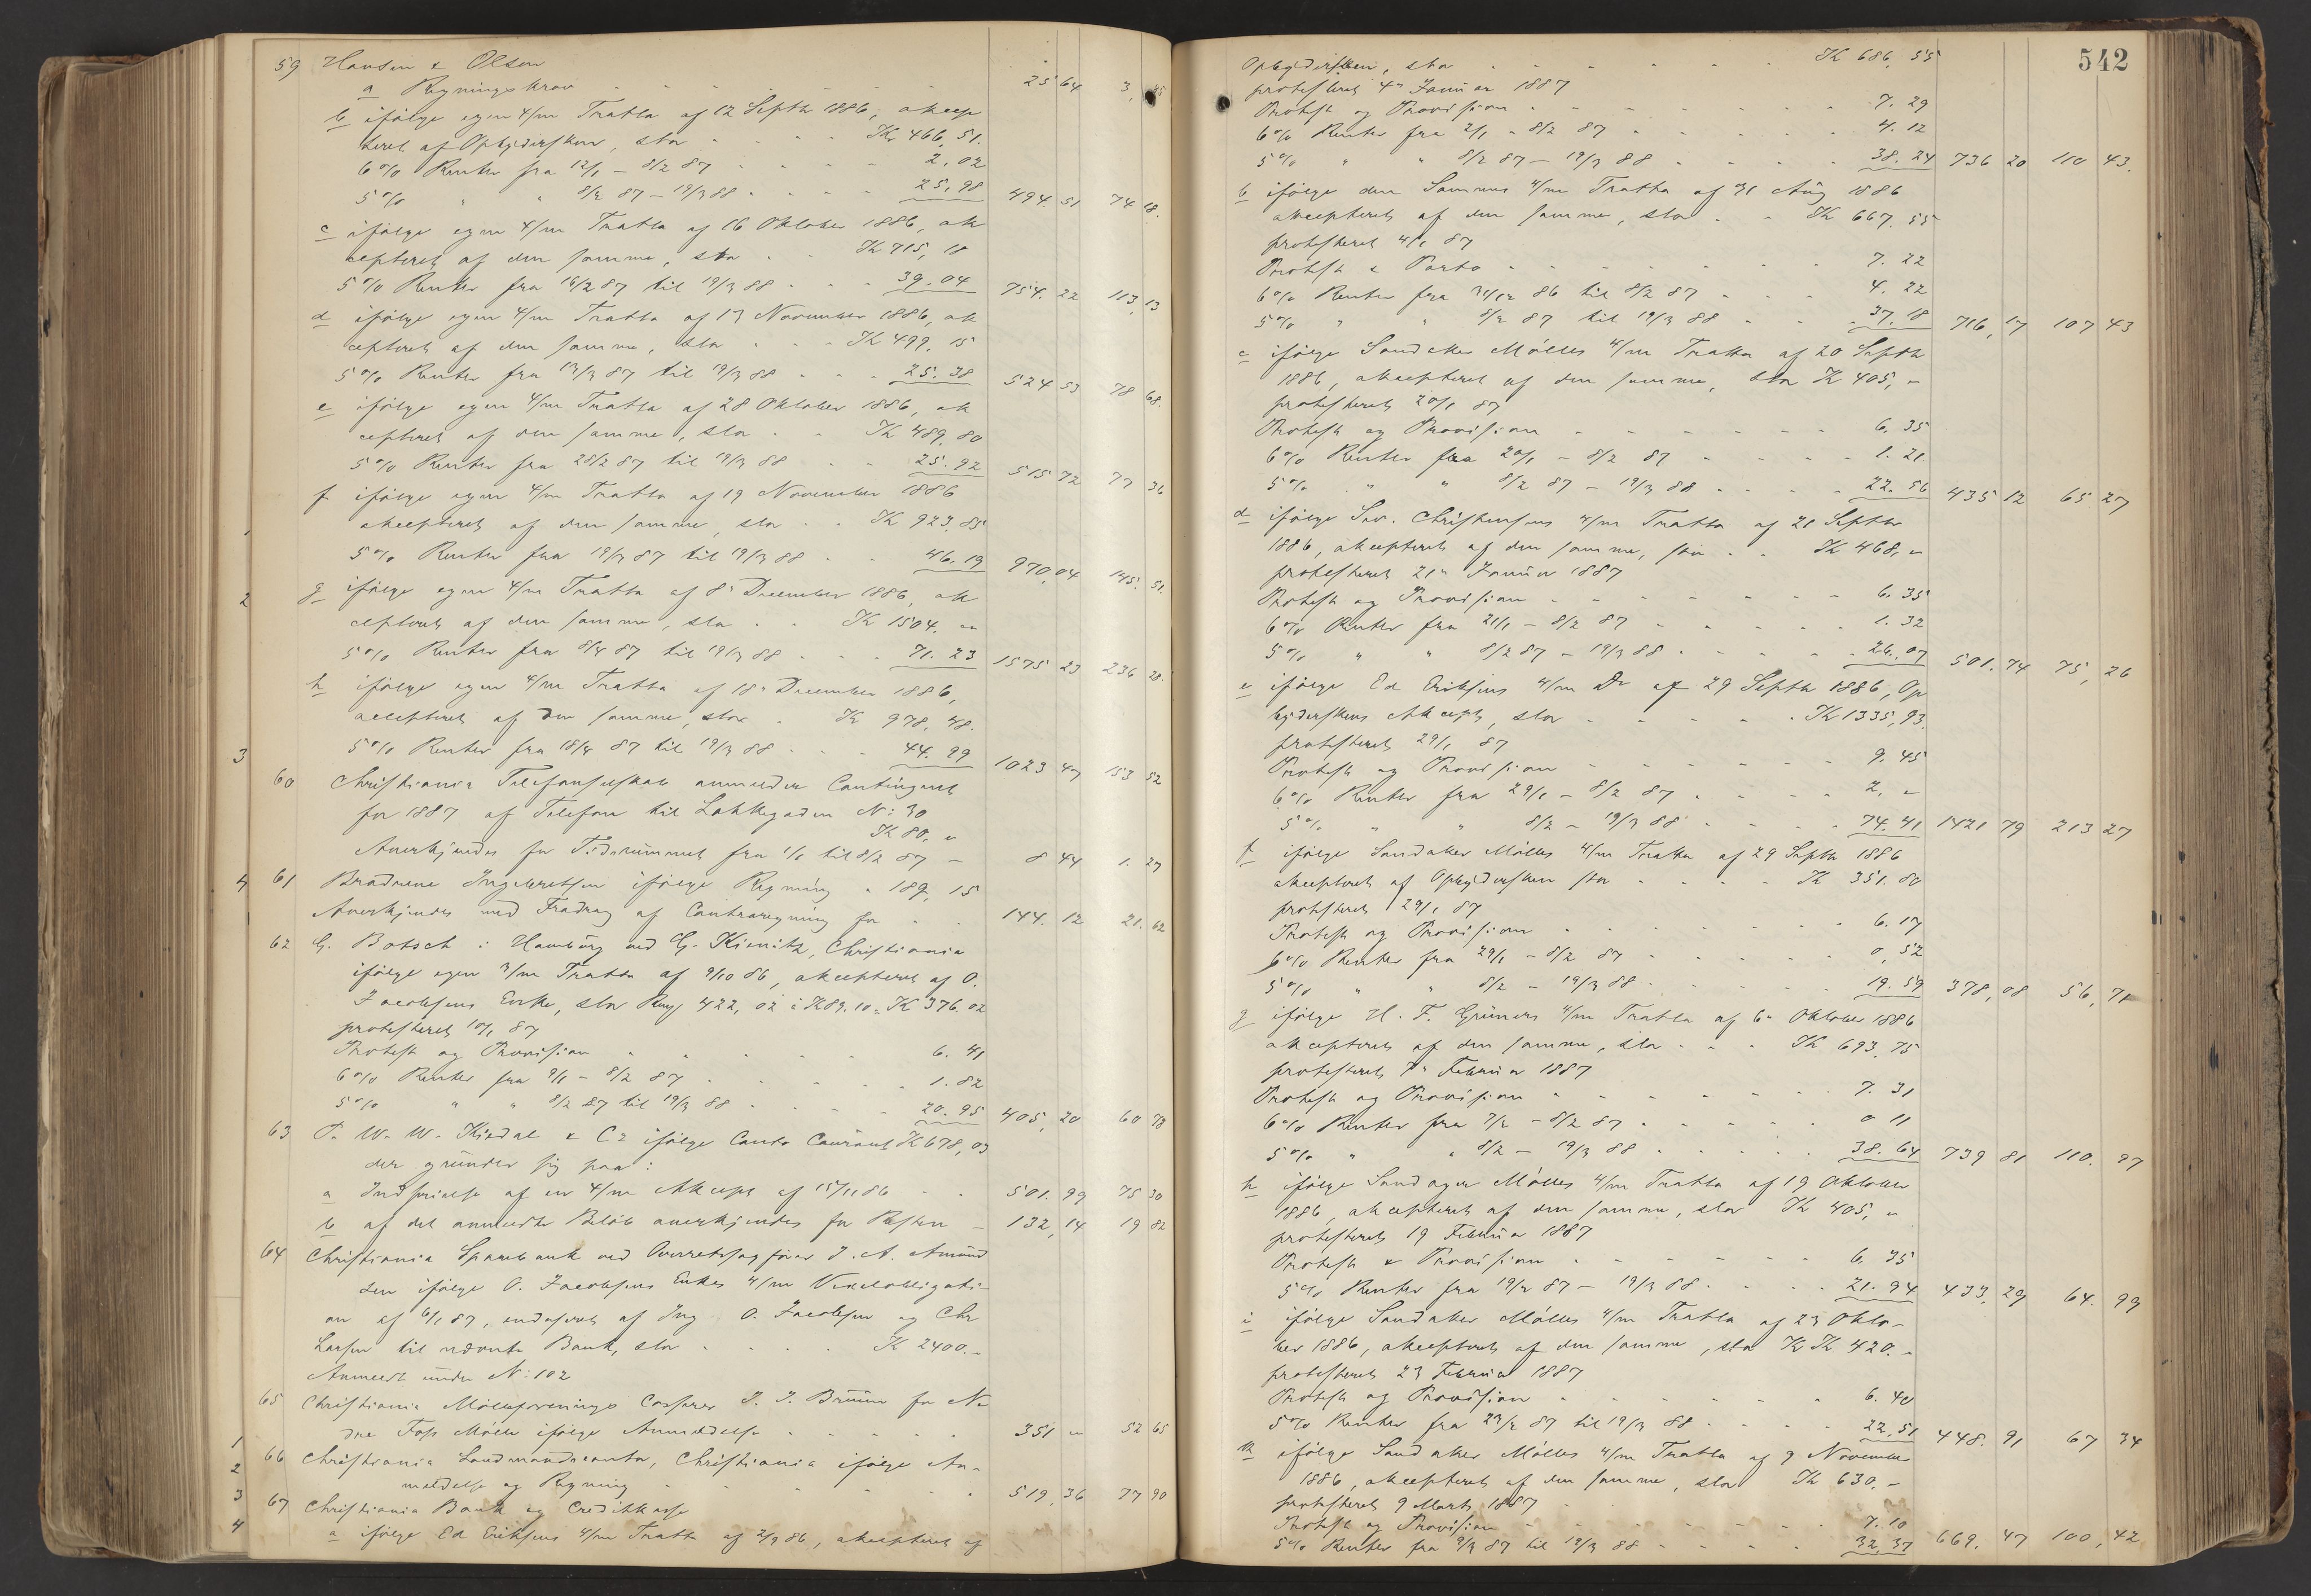 59 Hansen & Olsen
a Regningskrav 25 64 3,85
b ifølge egen 4/m Tratta af 12 Septbr 1886, akcep
teret af Opbydersken, stor Kr 466,51.
6% Renter fra 12/1 – 8/2 87 2.02
5% " " 8/2 87 – 19/3 88 25,98 494.51 74 18.
c ifølge egen 4/m Tratta af 16 Oktober 1886, ak
cepteret af den samme, stor Kr 715,18
5% Renter fra 16/2 87 til 19/3 88 39.04 754.22 113,13
d ifølge egen 4/m Tratta af 13 November 1886, ak
cepteret af den samme, stor Kr 499.15
5% Renter fra 13/3 87 til 19/3 88 25.38 524 53 78 68.
e ifølge egen 4/m Tratta af 28 Oktober 1886, ak
cepteret af den samme, stor Kr 489.80
5% Renter fra 28/2 87 til 19/3 88 25.92 515 72 77 36
f ifølge egen 4/m Tratta af 19 November 1886
akcepteret af den samme, stor Kr 923.85
1
5% Renter fra 19/3 87 til 19/3 88 46.19 970,04 145.51.
g ifølge egen 4/m Tratta af 8de December 1886, ak
2
cepteret af den samme, stor Kr 1504. "
5% Renter fra 8/4 87 til 19/3 88 71.23 1575 23 236 28.
h ifølge egen 4/m Tratta af 18de December 1886,
accepteret af den samme, stor Kr 978,48.
3 5% Renter fra 18/4 87 til 19/3 88 44.99 1023 47 153 52
60 Christiania Telefonselskab anmelder Contingent
for 1887 af Telefon til Lakkegaden No: 30
Kr 80. "
Anerkjendes for Tidsrummet fra 1/1 til 8/2 87 – 8 44 1.27
4 61 Brødrene Ingebretsen ifølge Regning " 189,15
Anerkjendes med Fradrag af Contraregning for 144.12 21.62
62 G. Botsch i Hamburg ved G. Kienitz, Christiania
ifølge egen 3/m Tratta af 9/10 86, akcepteret af O.
Jacobsens Enke, stor Rmg 422,02 à Kr 89.10 = Kr 376.02
protesteret 10/1 87
Protest og Provision 6.41
6% Renter fra 9/1 – 8/2 87 1.82
5% " " 8/2 87 til 19/3 88 20.95 405,20 60 78
63 P. W. W. Kildal & Co ifølge Conto Courant Kr 678,03
der grunder sig paa:
a Indfrielse af en 4/m Akcept af 15/11 86 501.99 75 30
b af det anmeldte Beløb anerkjendes for Resten – 132,14 19 82
64 Christiania Sparebank ved Overretssagfører J. A. Amund
sen ifølge O. Jacobsens Enkes 4/m Vexelobligati-
on af 6/1 87, endosseret af Ing. O. Jacobsen og Chr
Larsen til nævnte Bank, stor Kr 2400.–
Anmeldt under No: 102
65 Christiania Mølleforenings Casserer J. J. Bruun for Ne
1 dre Foss Mølle ifølge Anmeldelse 351 " 52 65
2 66 Christiania Landmandscontor, Christiania ifølge An-
meldelse og Regning 519,36 77 90
3 67 Christiania Bank og Creditkasse
4 a ifølge Ed Eriksens 4/m Tratta af 2/9 86, akcepteret af
542
Opbydersken, stor Kr 686,55
protesteret 4de Januar 1887
Protest og Provision 7.29
6% Renter fra 2/1 – 8/2 87 4.12
5% " " 8/2 87 – 19/3 88 38.24 736 20 110 43.
b ifølge den Sammes 4/m Tratta af 31 Aug 1886
akcepteret af den samme, stor Kr 667.55
protesteret 4/1 87
Protest & Porto 7.22
6% Renter fra 31/12 86 til 8/2 87 4.22
5% " " 8/2 87 til 19/3 88 37.18 716,17 107 43
c ifølge Sandaker Mølles 4/m Tratta af 20 Septbr
1886, akcepteret af den samme, stor Kr 405, "
protesteret 20/1 87
Protest og Provision 6.35
6% Renter fra 20/1 – 8/2 87 1.21
5% " " 8/2 87 – 19/3 88 22.56 435 12 65 27
d ifølge Sev. Christensens 4/m Tratta af 21 Septbr
1886, akcepteret af den samme, stor Kr 468, "
protesteret 21de Januar 1887
Protest og Provision 6.35
6% Renter fra 21/1 – 8/2 87 1.32
5% " " 8/2 87 – 19/3 88 26.07 501.74 75,26
e ifølge Ed Eriksens 4/m Dr af 29 Septbr 1886, Op
byderskens Akcept, stor Kr 1335,93.
protesteret 29/1 87
Protest og Provision 9.45
6% Renter fra 29/1 – 8/2 87 2. "
5% " " 8/2 – 19/3 88 74.41 1421 79 213 27
f ifølge Sandaker Mølles 4/m Tratta af 29 Septbr 1886
akcepteret af Opbydersken stor Kr 351.80
protesteret 29/1 87
Protest og Provision 6.17
6% Renter fra 29/1 – 8/2 87 0,52
5% " " 8/2 – 19/3 88 19.59 378,08 56,71
g ifølge H. F. Grüners 4/m Tratta af 6de Oktober 1886
akcepteret af den samme, stor Kr 693.75
protesteret 7de Februar 1887
Protest og Provision 7.31
6% Renter fra 7/2 – 8/2 87 0 11
5% " " 8/2 – 19/3 88 38.64 739 81 110.97
h ifølge Sandager Mølles 4/m Tratta af 19 Oktober
1886, akcepteret af den samme, stor Kr 405, "
protesteret 19 Februar 1887
Protest & Provision 6.35
5% Renter fra 19/2 87 – 19/3 88 21.94 433,29 64.99
i ifølge Sandaker Mølles 4/m Tratta af 23 Okto-
ber 1886, akcepteret af den samme, stor Kr Kr 420.–
protesteret 23 Februar 1887
Protest og Provision 6.40
5% Renter fra 23/2 87 til 19/3 88 22,51 448.91 67 34
k ifølge Sandaker Mølles 4/m Tratta af 9 November
1886, akcepteret af den samme, stor Kr 630.–
protesteret 9 Marts 1887
Protest og Provision 7.10
5% Renter fra 9/3 87 til 19/3 88 32.37 669.47 100,42